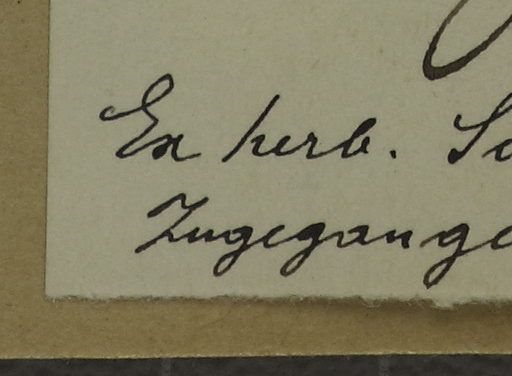 Ex herb.
Zugegange